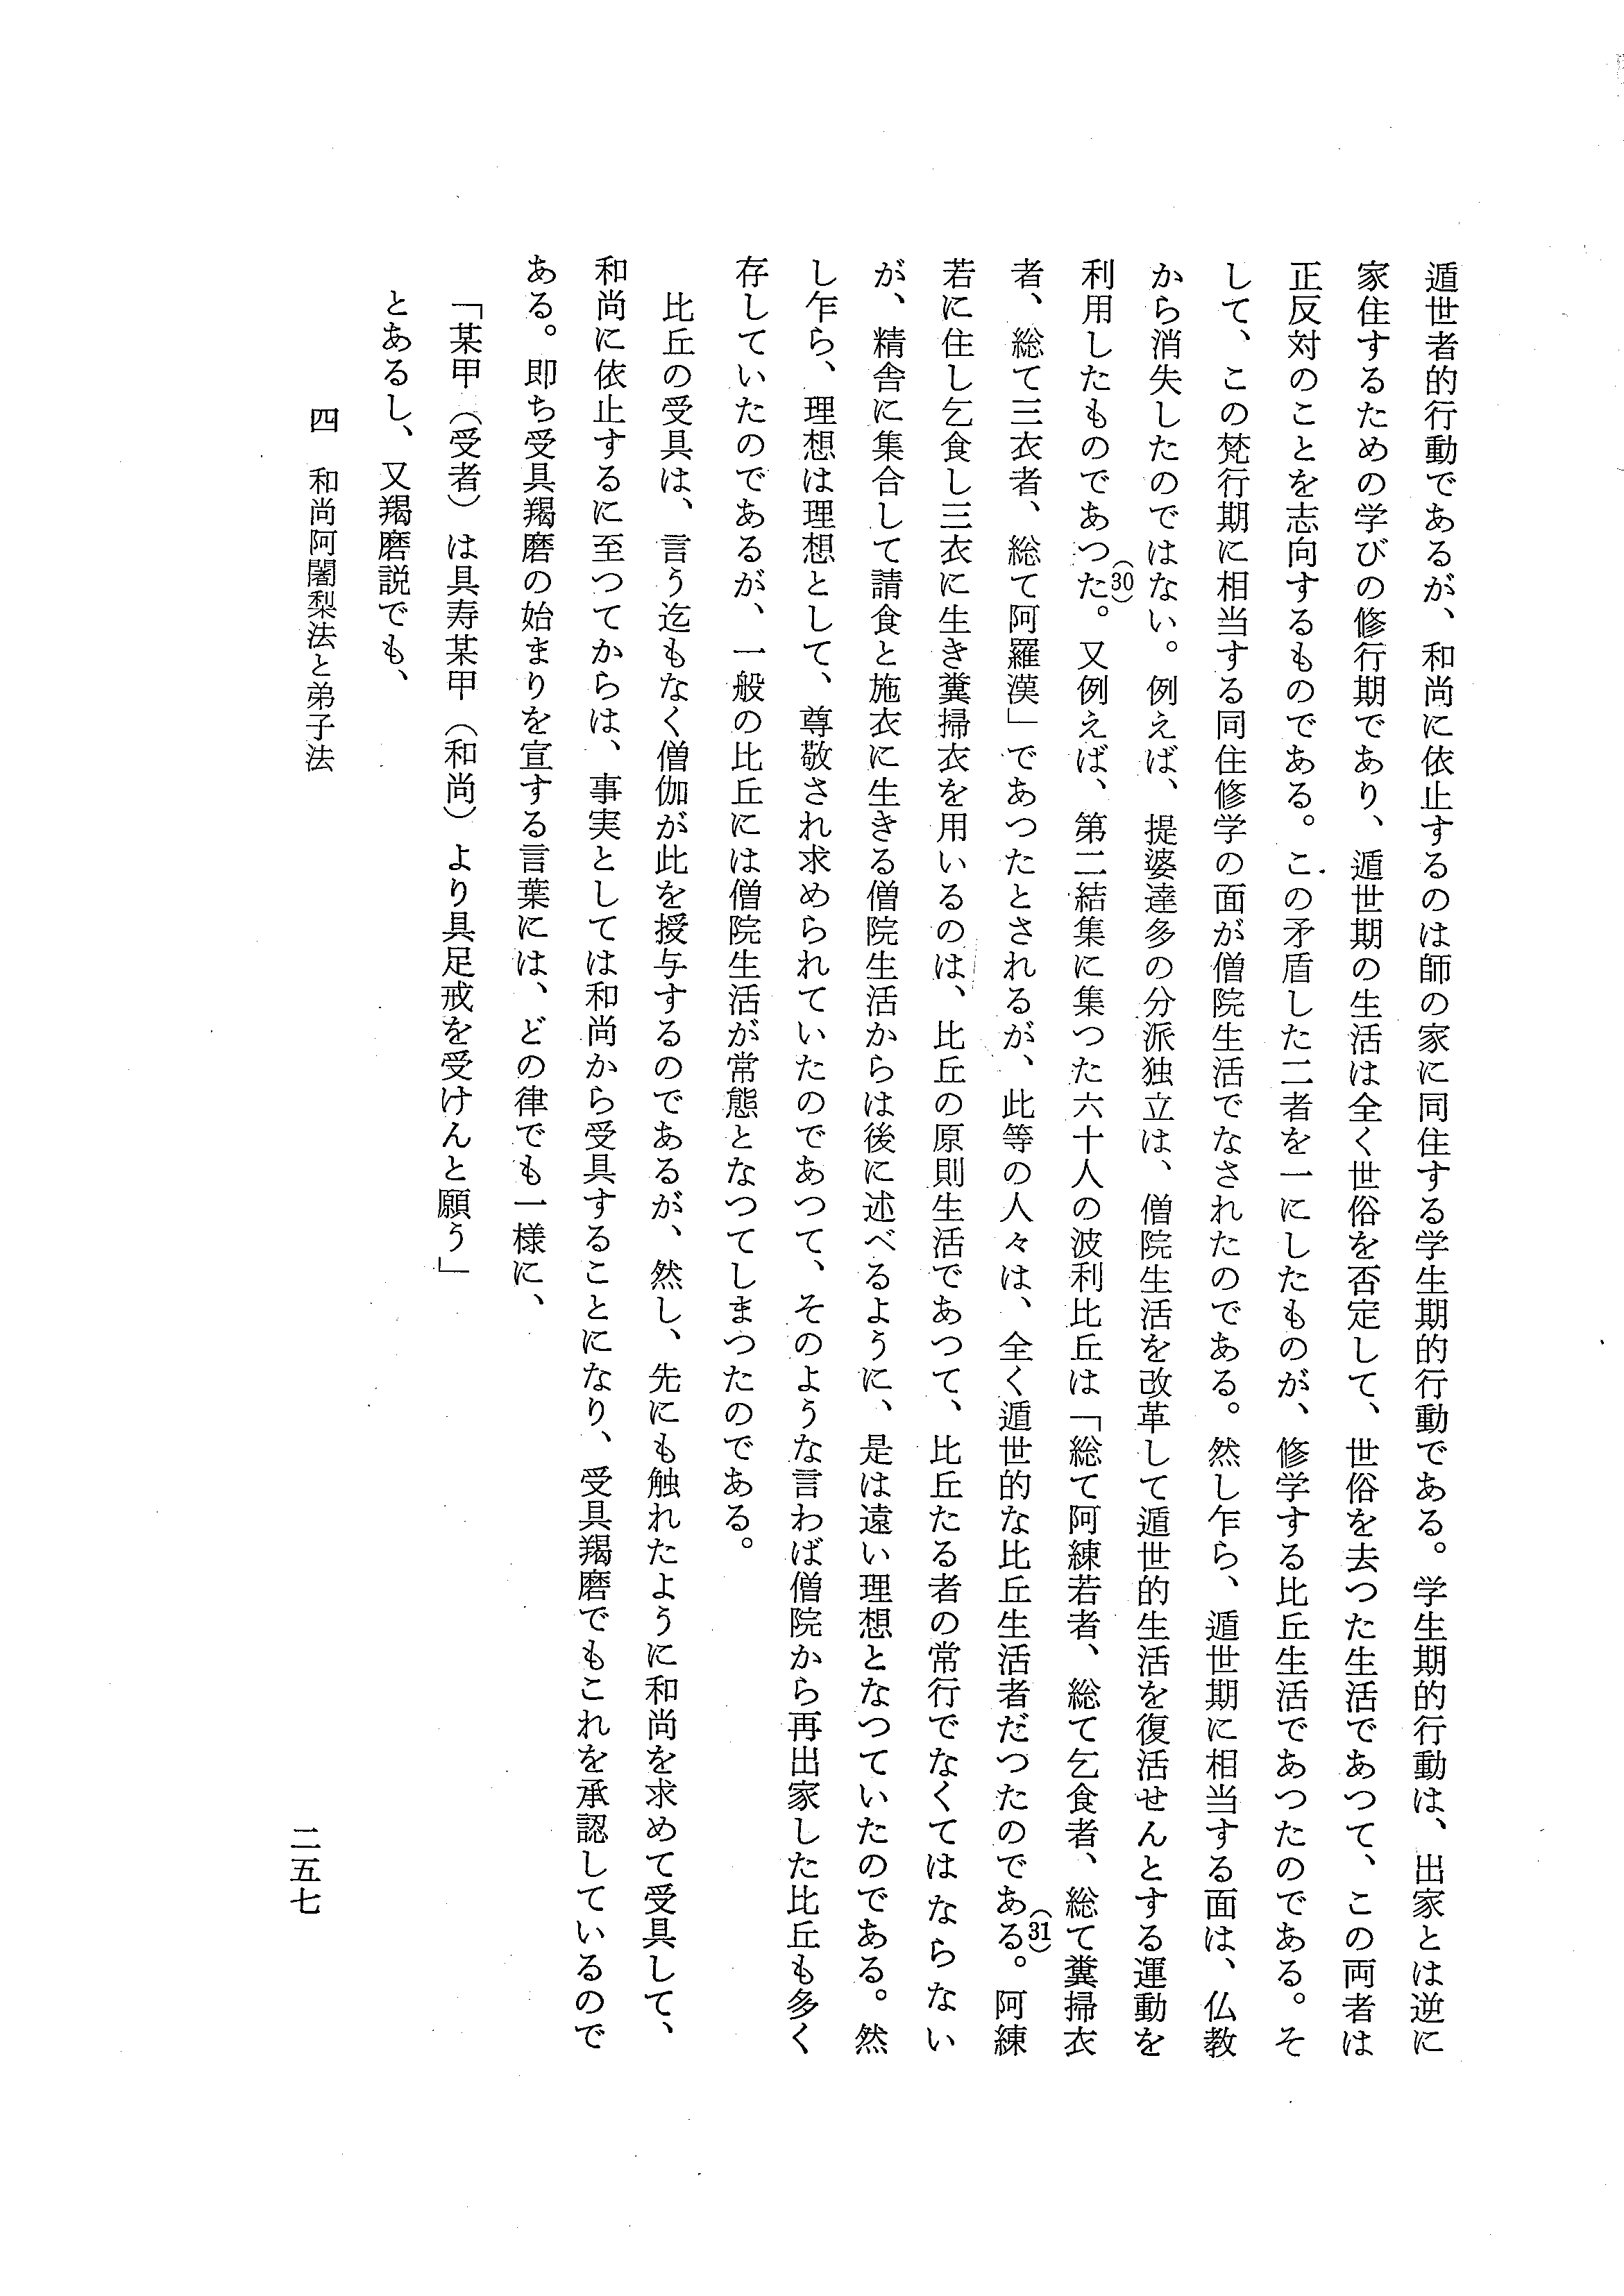 遁世者的行動であるが、和尚に依止するのは師の家に同住する学生期的行動である。学生期的行動は、出家とは逆に
家住するための学びの修行期であり、遁世期の生活は全く世俗を否定して、世俗を去つた生活であつて、この両者は
正反対のことを志向するものである。この矛盾した二者を一にしたものが、修学する比丘生活であつたのである。そ
して、この梵行期に相当する同住修学の面が僧院生活でなされたのである。然し乍ら、遁世期に相当する面は、仏教
から消失したのではない。例えば、提婆達多の分派独立は、僧院生活を改革して遁世的生活を復活せんとする運動を
利用したものであつた(30)。又例えば、第二結集に集つた六十人の波利比丘は「総て阿練若者、総て乞食者、総て糞掃衣
者、総て三衣者、総て阿羅漢」であつたとされるが、此等の人々は、全く遁世的な比丘生活者だつたのである(31)。阿練
若に住し乞食し三衣に生き糞掃衣を用いるのは、比丘の原則生活であつて、比丘たる者の常行でなくてはならない
が、精舎に集合して請食と施衣に生きる僧院生活からは後に述べるように、是は遠い理想となつていたのである。然
し乍ら、理想は理想として、尊敬され求められていたのであつて、そのような言わば僧院から再出家した比丘も多く
存していたのであるが、一般の比丘には僧院生活が常態となつてしまつたのである。
比丘の受具は、言う迄もなく僧伽が此を授与するのであるが、然し、先にも触れたように和尚を求めて受具して、
和尚に依止するに至つてからは、事実としては和尚から受具することになり、受具羯磨でもこれを承認しているので
ある。即ち受具羯磨の始まりを宣する言葉には、どの律でも一様に、
「某甲（受者）は具寿某甲（和尚）より具足戒を受けんと願う」
とあるし、又羯磨説でも、
四　和尚阿闍梨法と弟子法
二五七